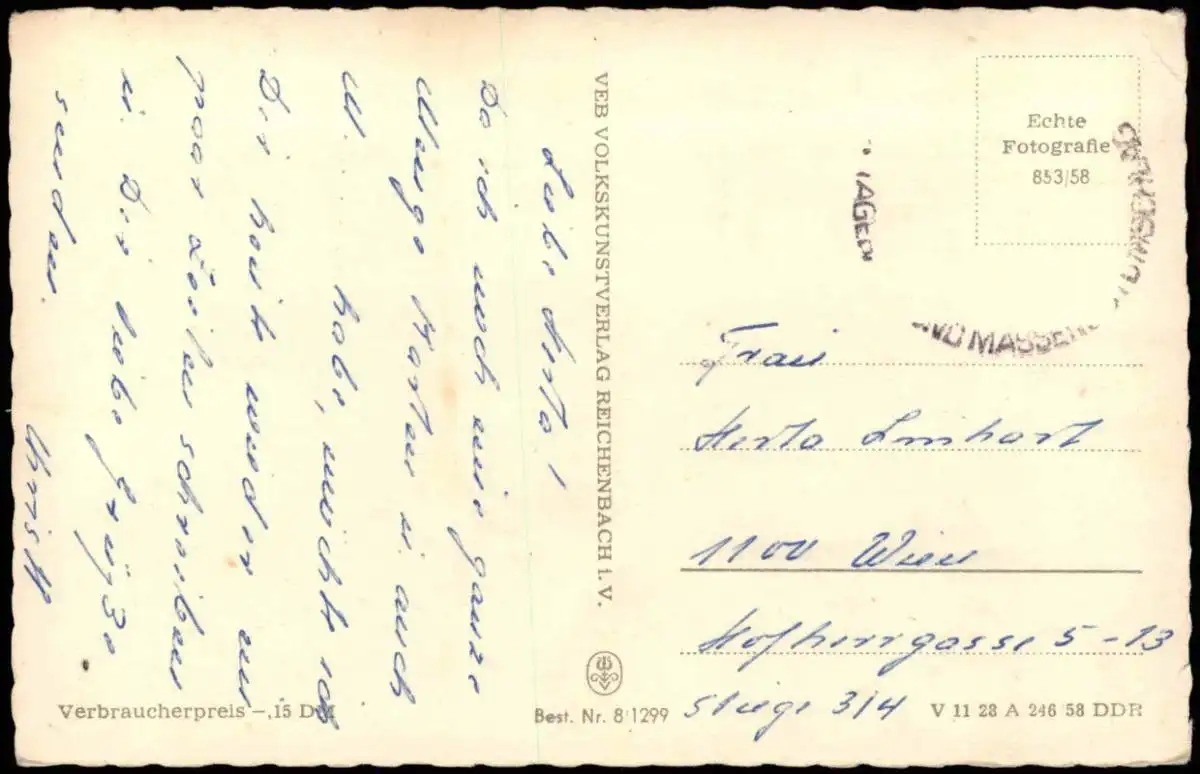 Liebe Herta!
Da ich noch eine ganze
Menge Karten u. auch
M. habe, möcht ich
Dir heut wieder ein
paar Zeilen schreiben
u. Dir liebe Grüße
senden.
Christl
VEB VOLKSKUNSTVERLAG REICHENBACH i. V.
Verbraucherpreis -,15 DM
Best. Nr. 8/1299
Echte
Fotografie
853/58
ND MASSEN
Frau
Herta Linhart
1100 Wien
Hofherrgasse 5-13
Stiege 3/4
V 11 28 A 246 58 DDR